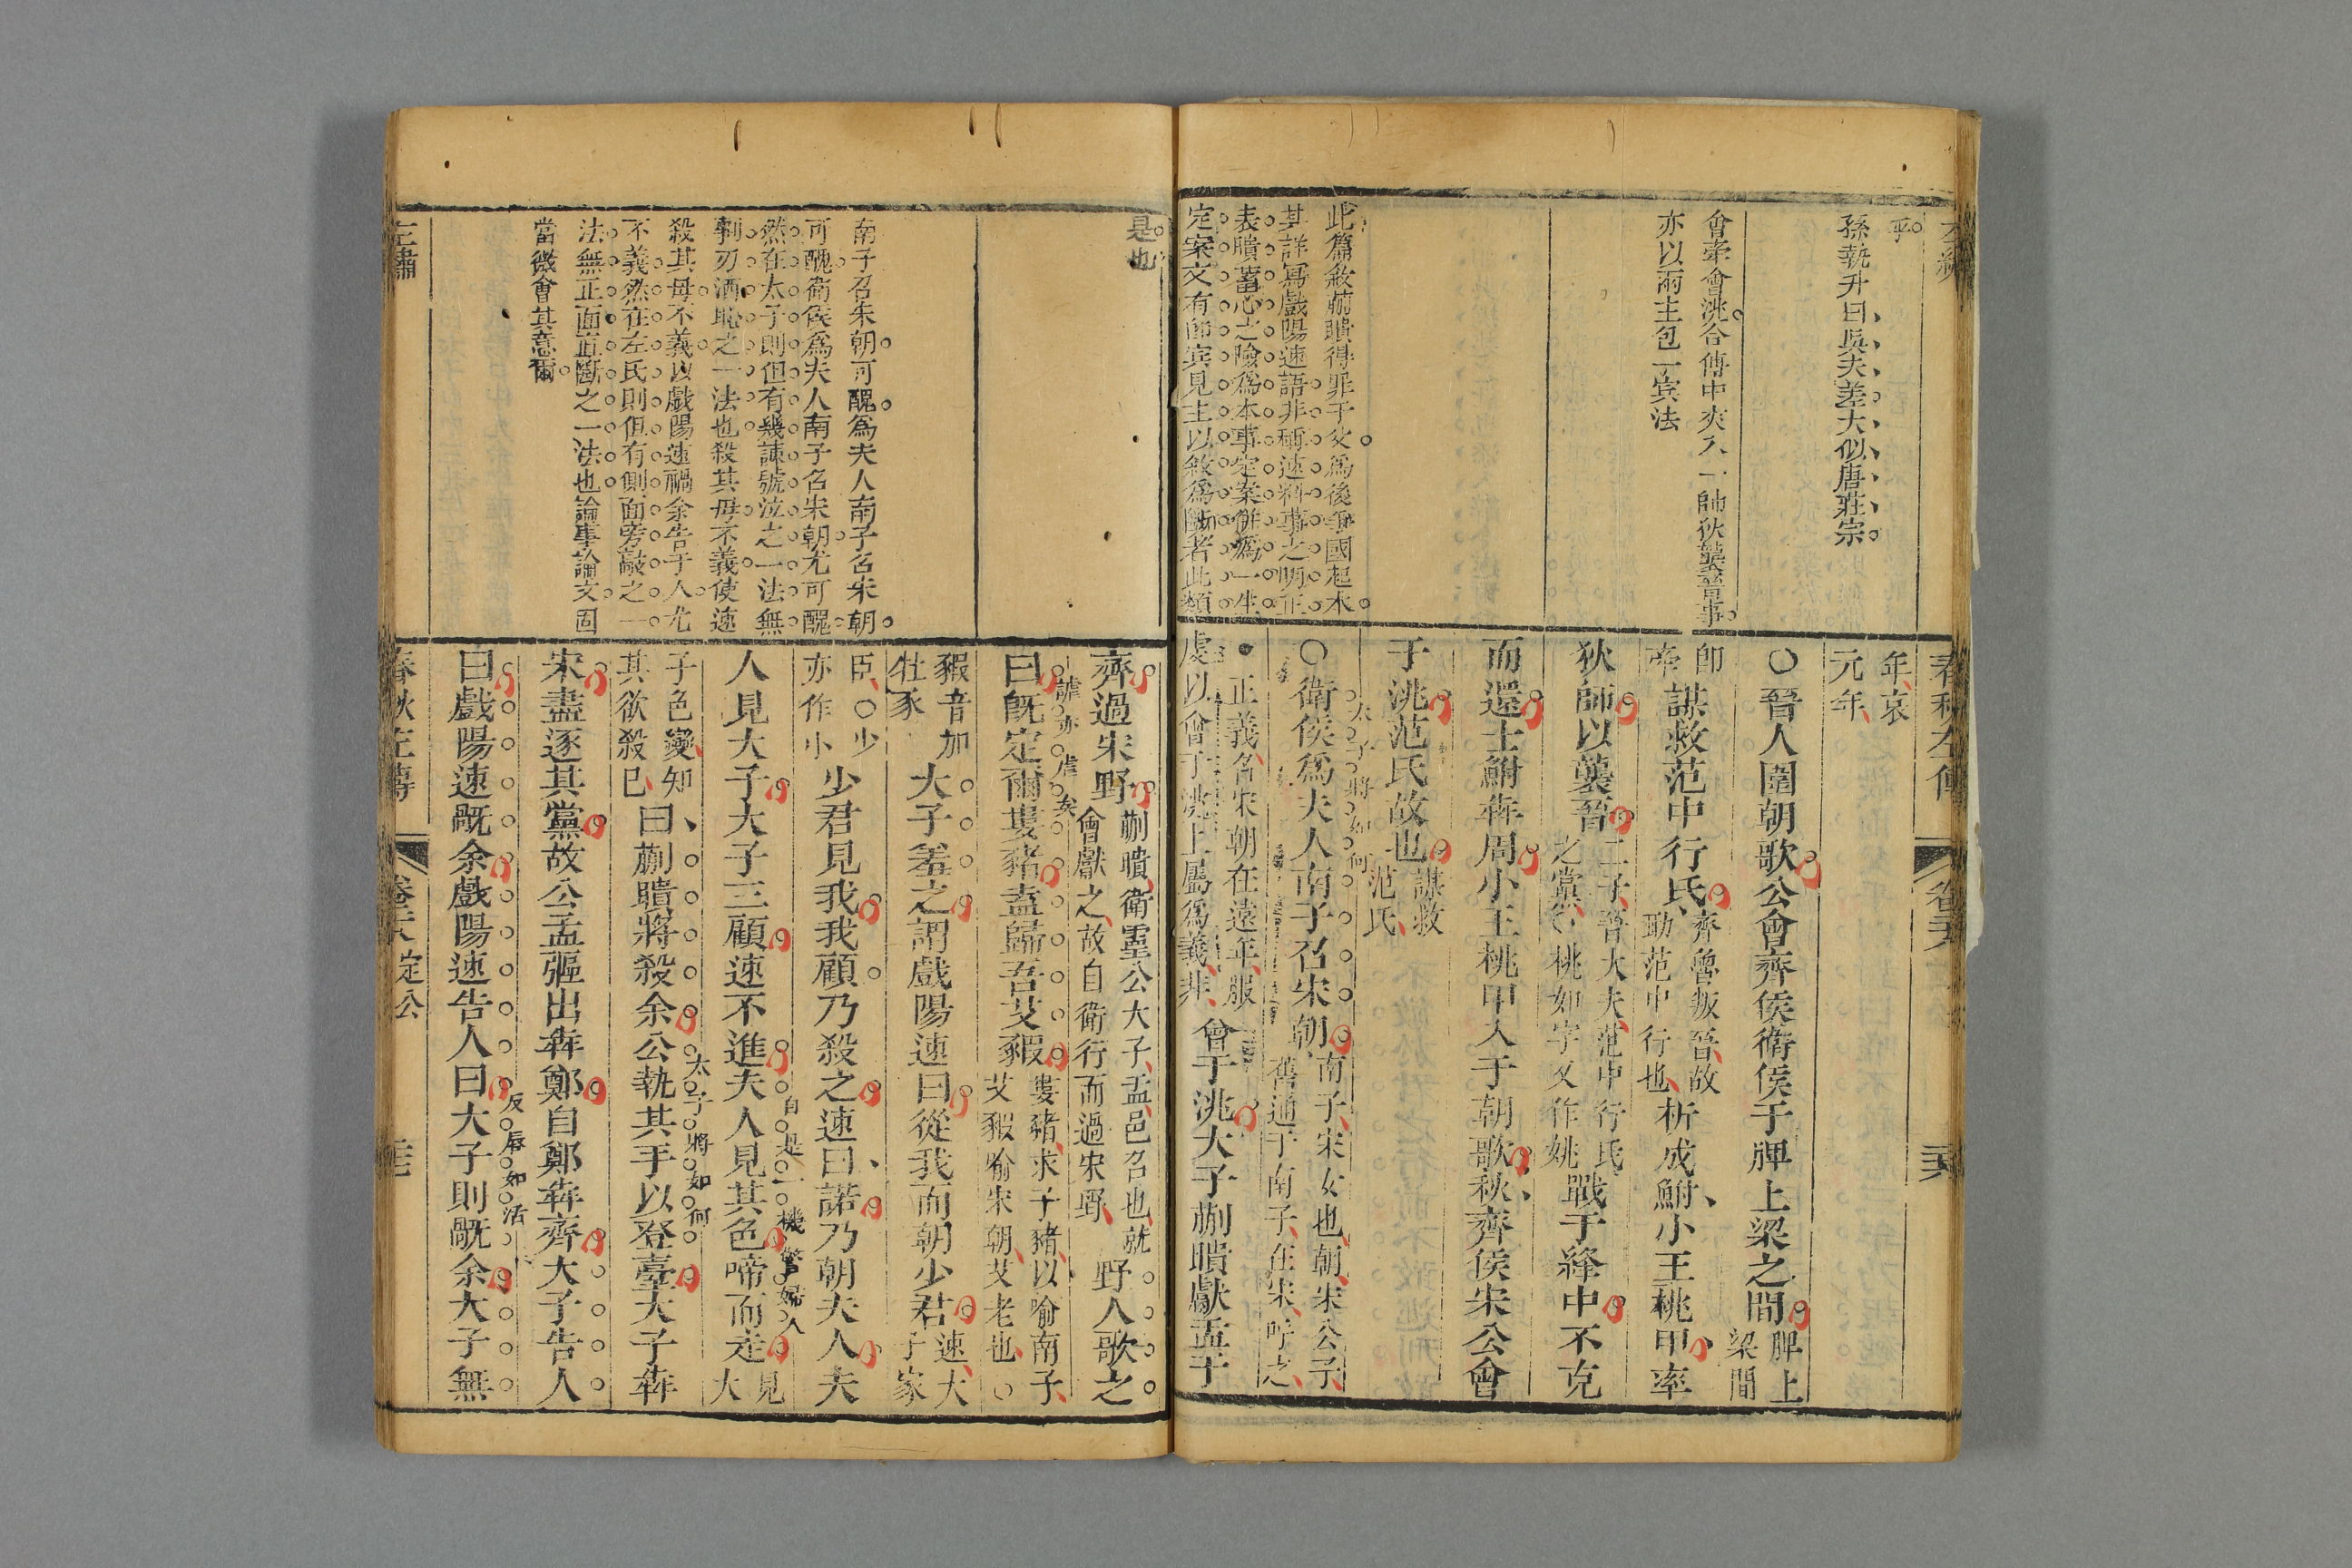 春秋左傳
乎
孫執升曰吳夫差大似唐莊宗
會牽會洮合傳中夾入一師狄襲晉事
亦以兩主包一賓法
此篇敘蒯聵得罪于父爲後爭國起本
其詳寫戲陽速語非稱速料事之明正
表聵蓄心之險爲本事定案併爲一生
定案文有卽賓見主以敘爲斷者此類
年哀
元年
○晉人圍朝歌公會齊侯衛侯于脾上梁之間脾上
梁間
卽
牽謀救范中行氏齊魯叛晉故
助范中行也析成鮒小王桃甲率
狄師以襲晉二子晉大夫范中行氏
之黨○桃如字又作姚戰于絳中不克
而還士鮒奔周小王桃甲入于朝歌秋齊侯宋公會
于洮范氏故也謀救
范氏
太子將如何
○衛侯爲夫人南子召宋朝南子宋女也朝宋公子
舊通于南子在宋呼之
正義召宋朝在遠年服
虔以會于洮上屬爲義非會于洮大子蒯聵獻盂于
是也
南子召宋朝可醜爲夫人南子召宋朝
可醜衛侯爲夫人南子召宋朝尤可醜
然在太子則但有幾諫號泣之一法無
剚刃洒恥之一法也殺其母不義使速
殺其母不義以戲陽速禍余告于人尤
不義然在左氏則但有側面旁敲之一
法無正面直斷之一法也論事論文固
當微會其意爾
齊過宋野蒯聵衛靈公大子盂邑名也就
會獻之故自衛行而過宋野野人歌之
謔亦虐矣
曰旣定爾婁豬盍歸吾艾豭婁豬求子豬以喻南子
艾豭喻宋朝艾老也○
豭音加
牡豕大子羞之謂戲陽速曰從我而朝少君速大
子家
臣○少
亦作小少君見我我顧乃殺之速曰諾乃朝夫人夫
自是一機警婦人
人見大子大子三顧速不進夫人見其色啼而走見
大
子色變知
其欲殺己曰蒯聵將殺余公執其手以登臺大子奔
太子將如何
宋盡逐其黨故公孟彄出奔鄭自鄭奔齊大子告人
反唇如活
曰戲陽速旤余戲陽速告人曰大子則旤余大子無
左繡
春秋左傳
定公